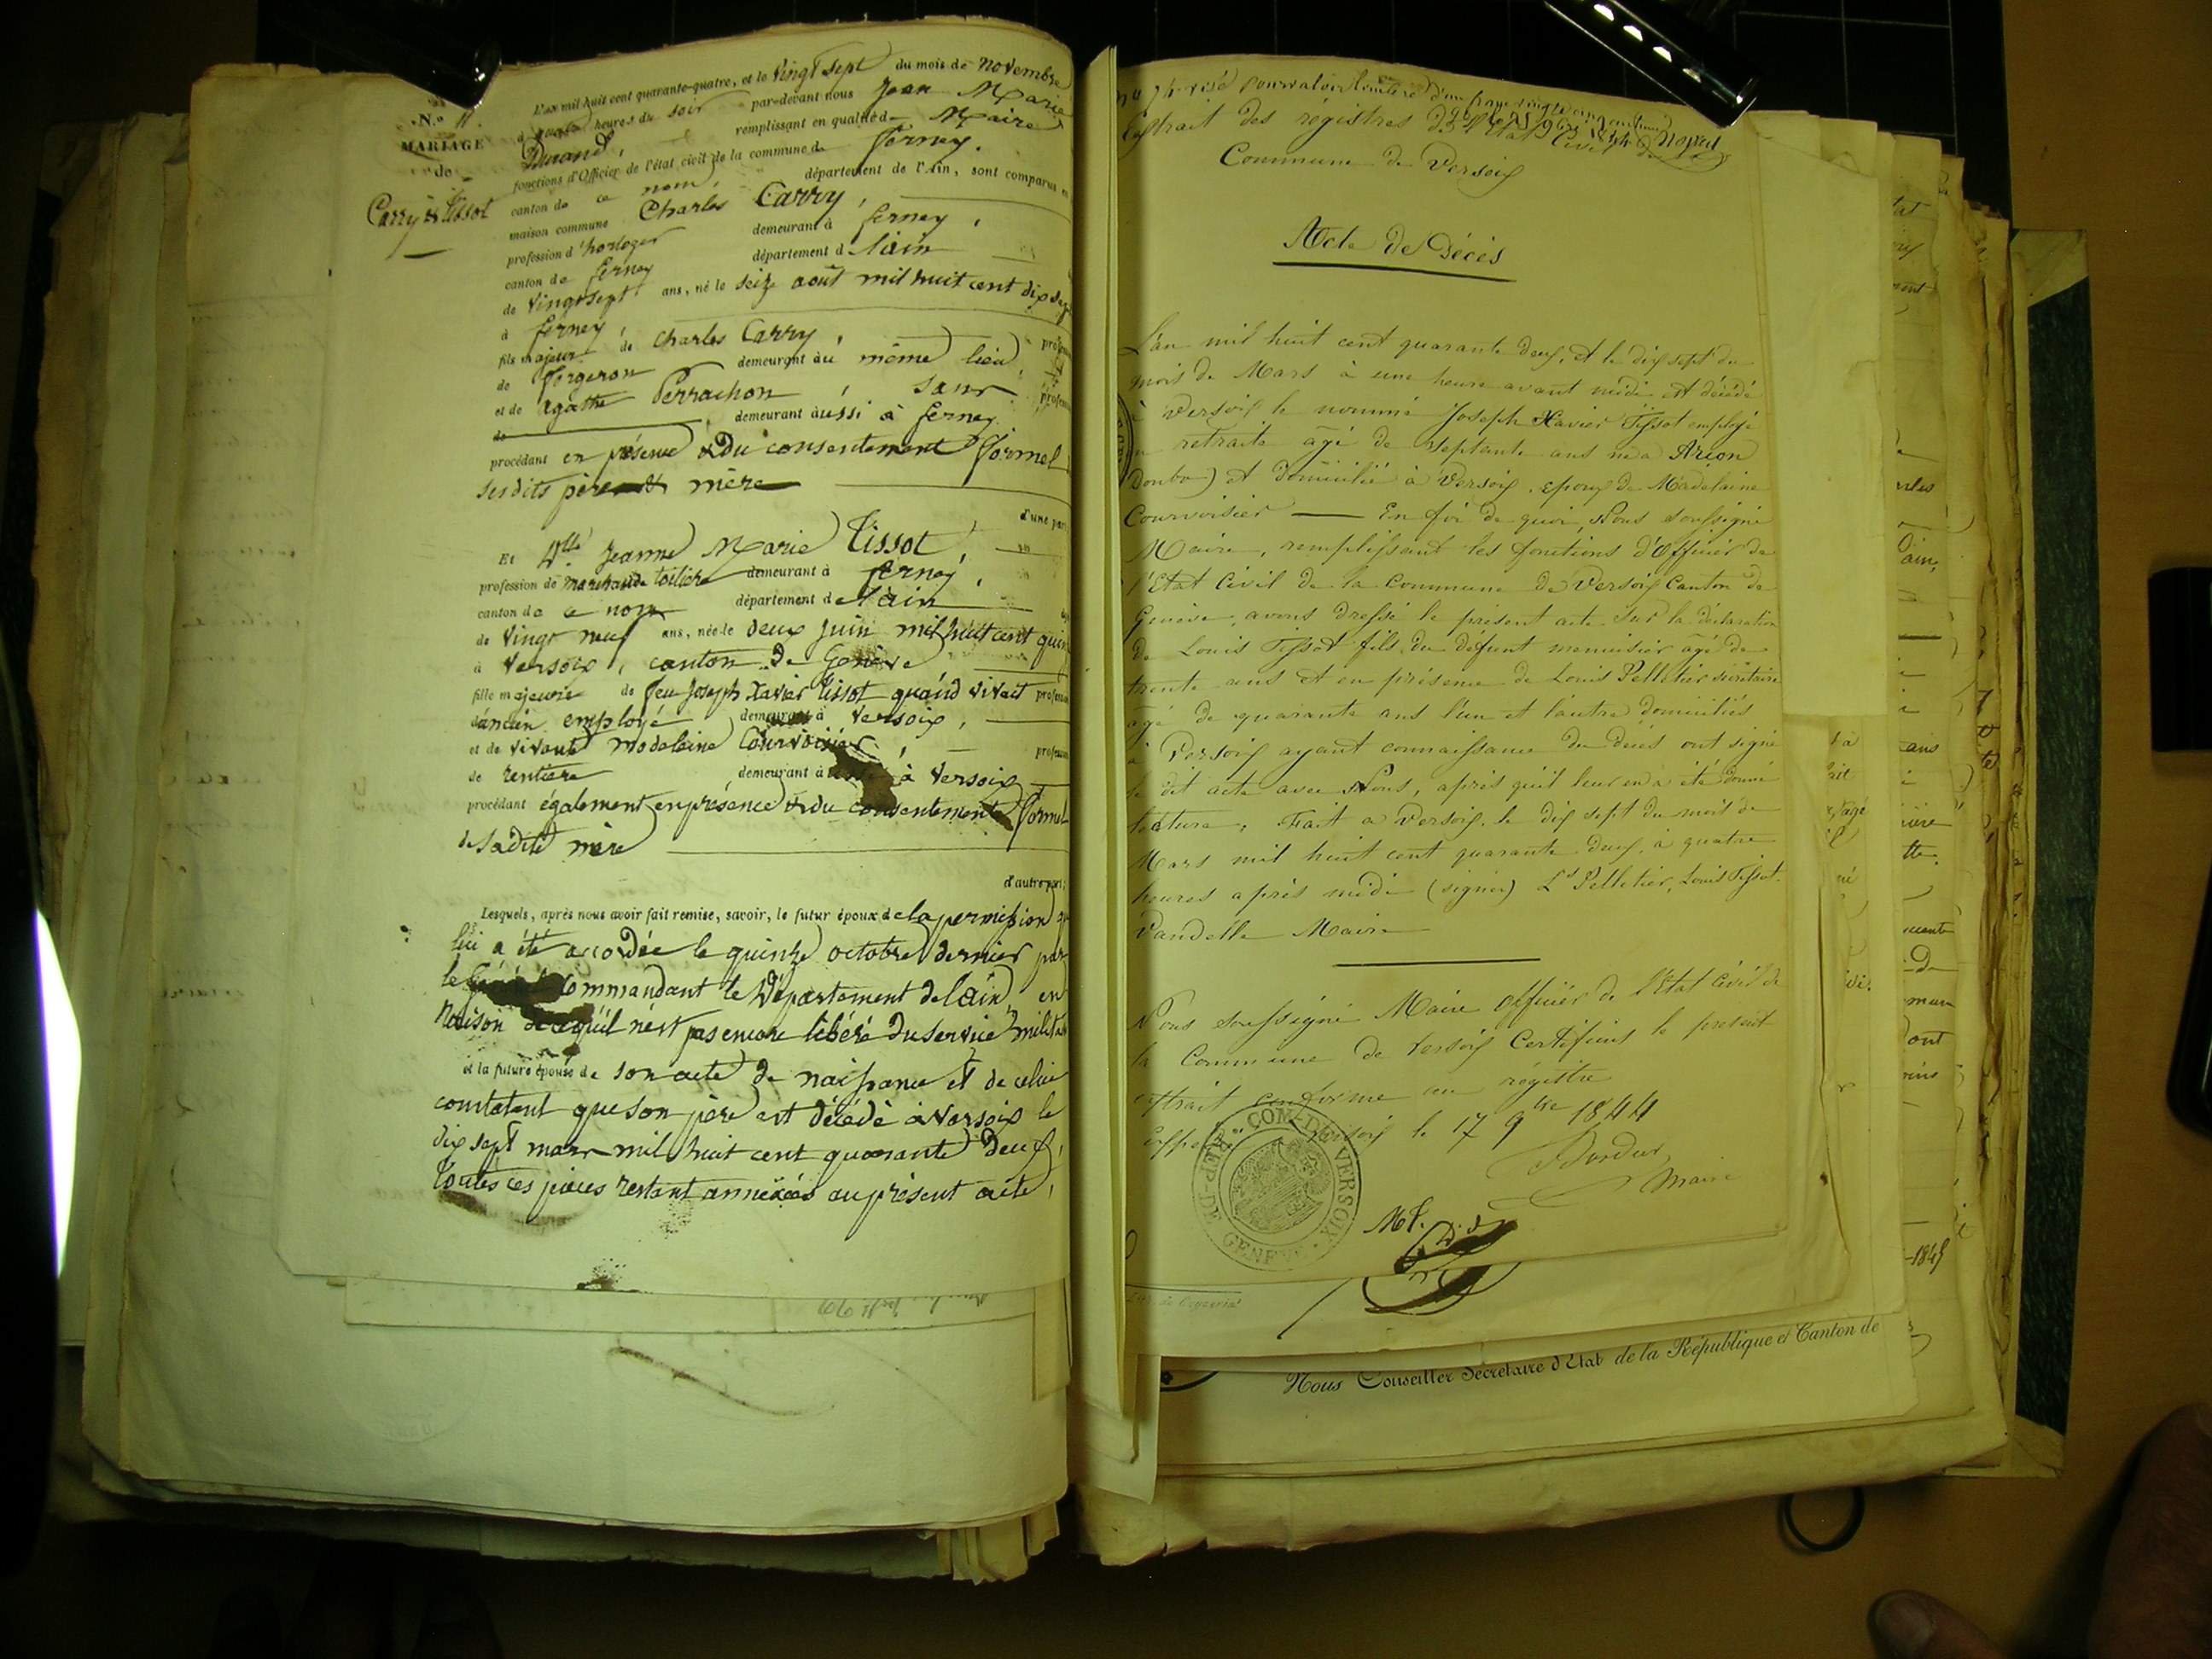 N.º 11.
MARIAGE
de
Carry & Tissot
L'an mil huit cent quarante-quatre, et le vingt sept du mois de novembre
à quatre heures du soir par-devant nous Jean Marie
Durand, remplissant en qualité de Maire
fonctions d'Officier de l'état civil de la commune de Ferney.
canton de ce nom, département de l'Ain, sont comparus en
maison commune Charles Carry,
profession d'horloger demeurant à ferney,
canton de ferney département de lain
de vingt sept ans, né le seize août mil huit cent dix sept
à ferney
fils majeur de Charles Carry,
de forgeron demeurant au même lieu,
et de agathe Perrachon, sans
de demeurant aussi à ferney
procédant en présence & du consentement formel
ses dits père & mère
d'une part
Et Dlle Jeanne Marie Tissot,
profession de marchande toilière demeurant à ferney,
canton de ce nom département de lain
de vingt neuf ans, née le deux juin mil huit cent quin
à Versoix, canton de Genève
fille majeure de feu Joseph Xavier Tissot quand vivait
ancien employé demeurant à Versoix,
et de vivante Madelaine Courvoisier,
de rentière demeurant à à Versoix
procédant également en présence & du consentement formel
de sadite mère
d'autre part;
Lesquels, après nous avoir fait remise, savoir, le futur époux de la permission
lui a été accordée le quinze octobre dernier par
le Commandant le Département de lain, en
raison de ce qu'il n'est pas encore libéré du service
et la future épouse de son acte de naissance et de celui
constatant que son père est décédé à Versoix le
dix sept mars mil huit cent quarante deux,
toutes ces pièces restant annexées au présent acte,
visé pour valoir timbre d'un franc vingt cinq centimes
Extrait des régistres de l'Etat Civil de
Commune de Versoix
Acte de Décès
L'an mil huit cent quarante deux, et le dix sept du
mois de Mars à une heure avant midi est décédé
à Versoix le nommé Joseph Xavier Tissot employé
en retraite âgé de septante ans né à Arçon
Doubs) et domicilié à Versoix, epoux de Madelaine
Courvoisier — En foi de quoi, Nous soussigné
Maire, remplissant les fonctions d'Officier de
l'Etat Civil de la Commune de Versoix Canton de
Genève, avons dressé le présent acte sur la déclaration
de Louis Tissot fils du défunt menuisier âgé de
trente ans et en présence de Louis Pelletier secrétaire
âgé de quarante ans l'un et l'autre domiciliés
à Versoix ayant connaissance du décès ont signé
le dit acte avec Nous, après qu'il leur en a été donné
lecture. Fait à Versoix le dix sept du mois de
Mars mil huit cent quarante deux, à quatre
heures après midi (signés) Ls Pelletier, Louis Tissot.
Vandelle Maire
Nous soussigné Maire Officier de l'Etat Civil de
la Commune de Versoix Certifions le présent
extrait conforme au régistre
Versoix le 17 9bre 1844
Maire
COM. DE VERSOIX
REP. DE GENÈVE
Nous Conseiller Secrétaire d'Etat de la République et Canton de
1845